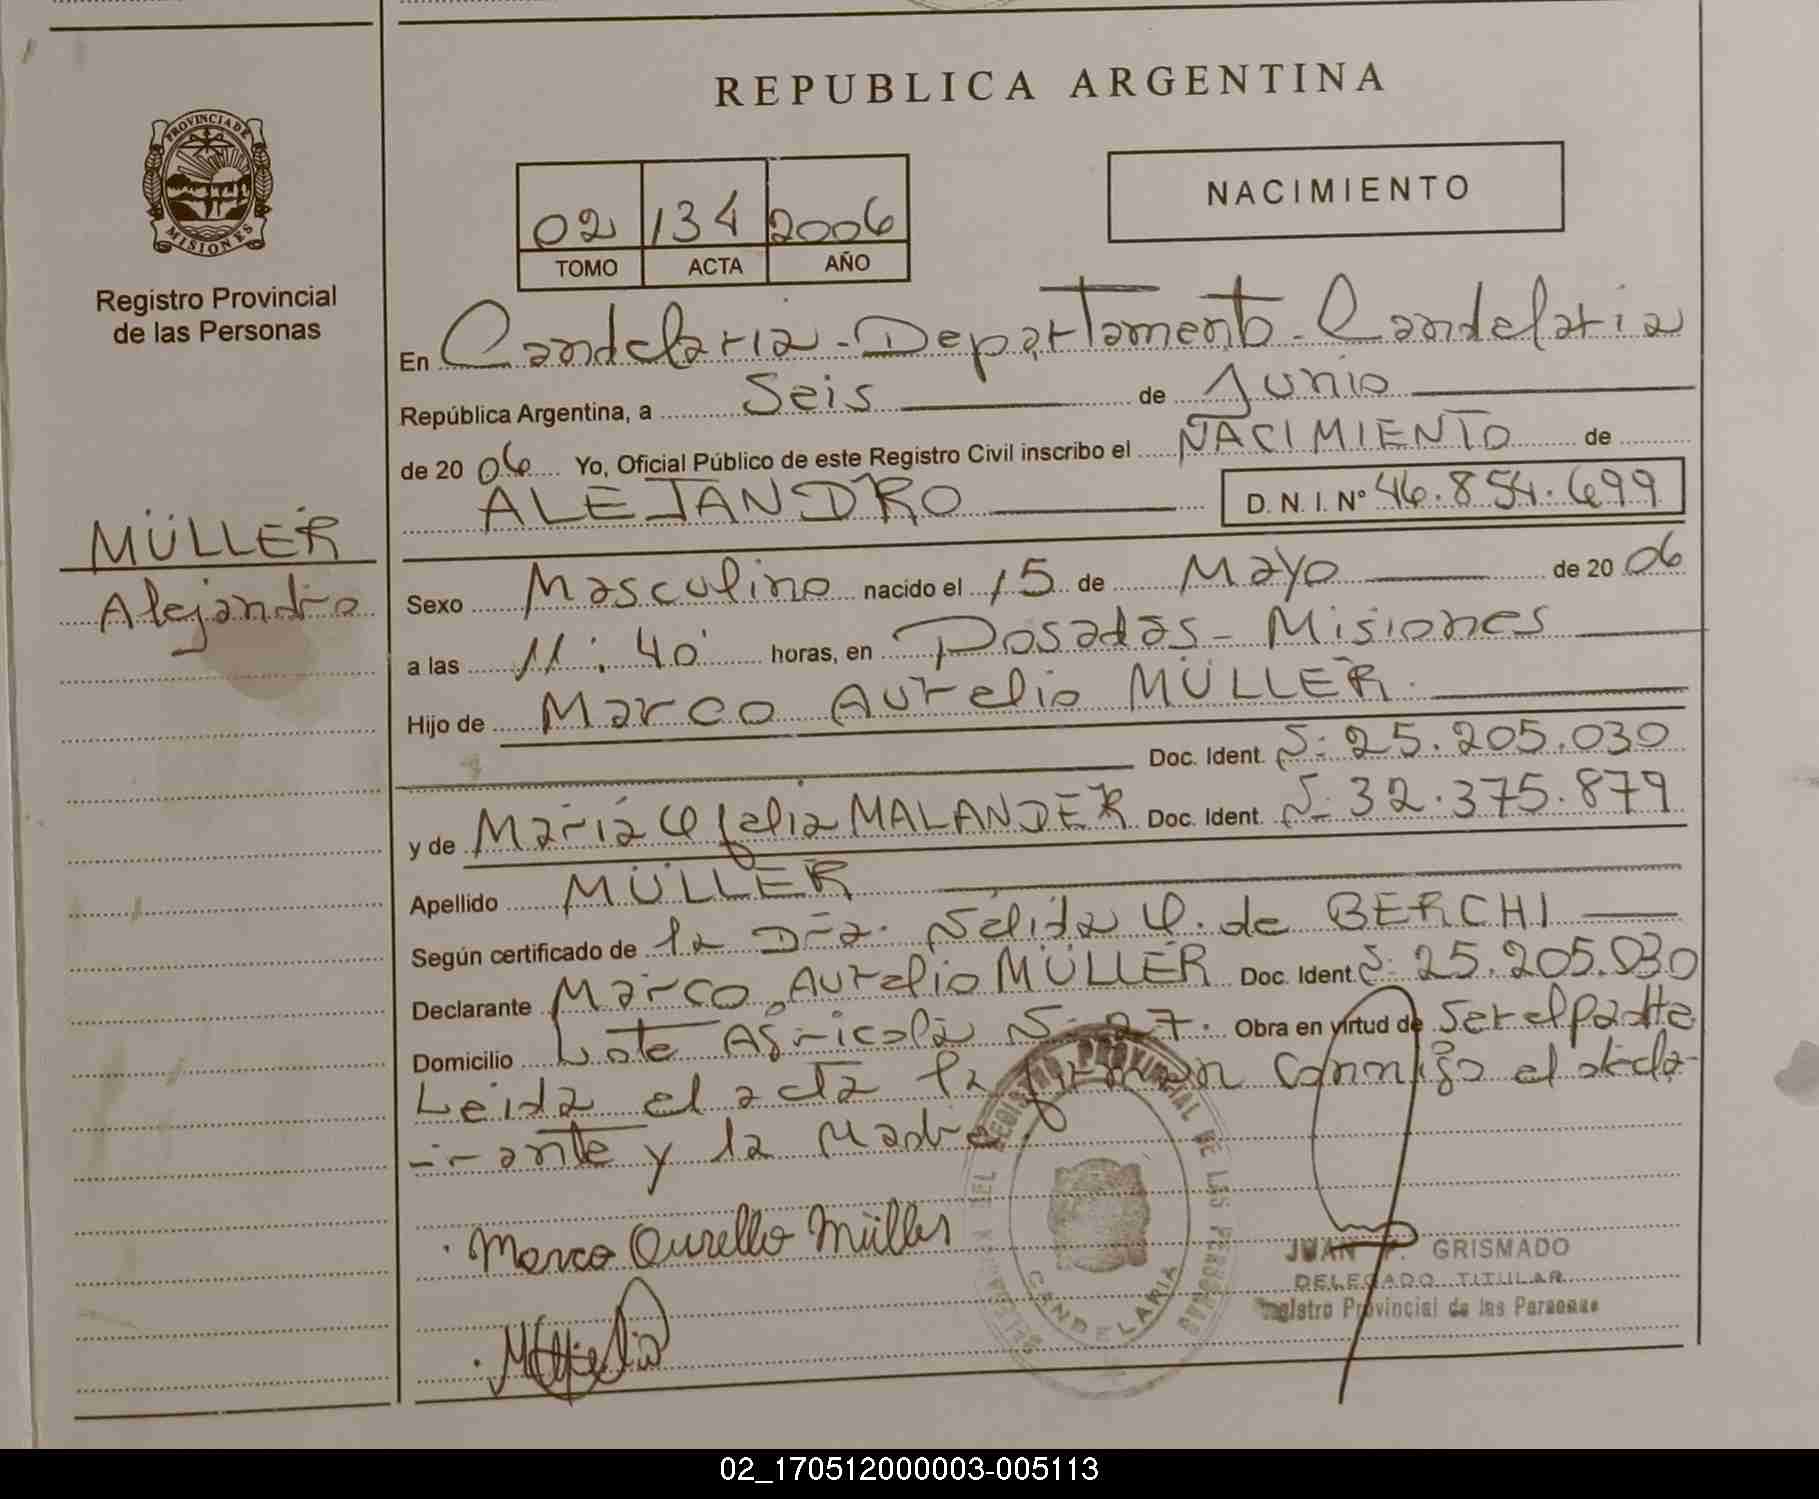 REPUBLICA ARGENTINA
PROVINCIA DE
MISIONES
Registro Provincial
de las Personas
MÜLLER
Alejandro
02 134 2006
TOMO ACTA AÑO
NACIMIENTO
En Candelaria - Departamento - Candelaria
República Argentina, a Seis de Junio
de 20 06 Yo, Oficial Público de este Registro Civil inscribo el NACIMIENTO de
ALEJANDRO D. N. I. Nº 46.854.699
Sexo Masculino nacido el 15 de Mayo de 20 06
a las 11:40 horas, en Posadas - Misiones
Hijo de Marco Aurelio MÜLLER
Doc. Ident. 25.205.030
y de María Ofelia MALANDER Doc. Ident. 32.375.879
Apellido MÜLLER
Según certificado de la Dra. Nélida de BERCHI
Declarante Marco Aurelio MÜLLER Doc. Ident. 25.205.030
Domicilio Lote Agrícola 27. Obra en virtud de ser el padre
Leída el acta la firman conmigo el decla-
-rante y la Madre
Marco Aurelio Müller
REGISTRO PROVINCIAL DE LAS PERSONAS
CANDELARIA
JUAN GRISMADO
DELEGADO TITULAR
Registro Provincial de las Personas
02_170512000003-005113